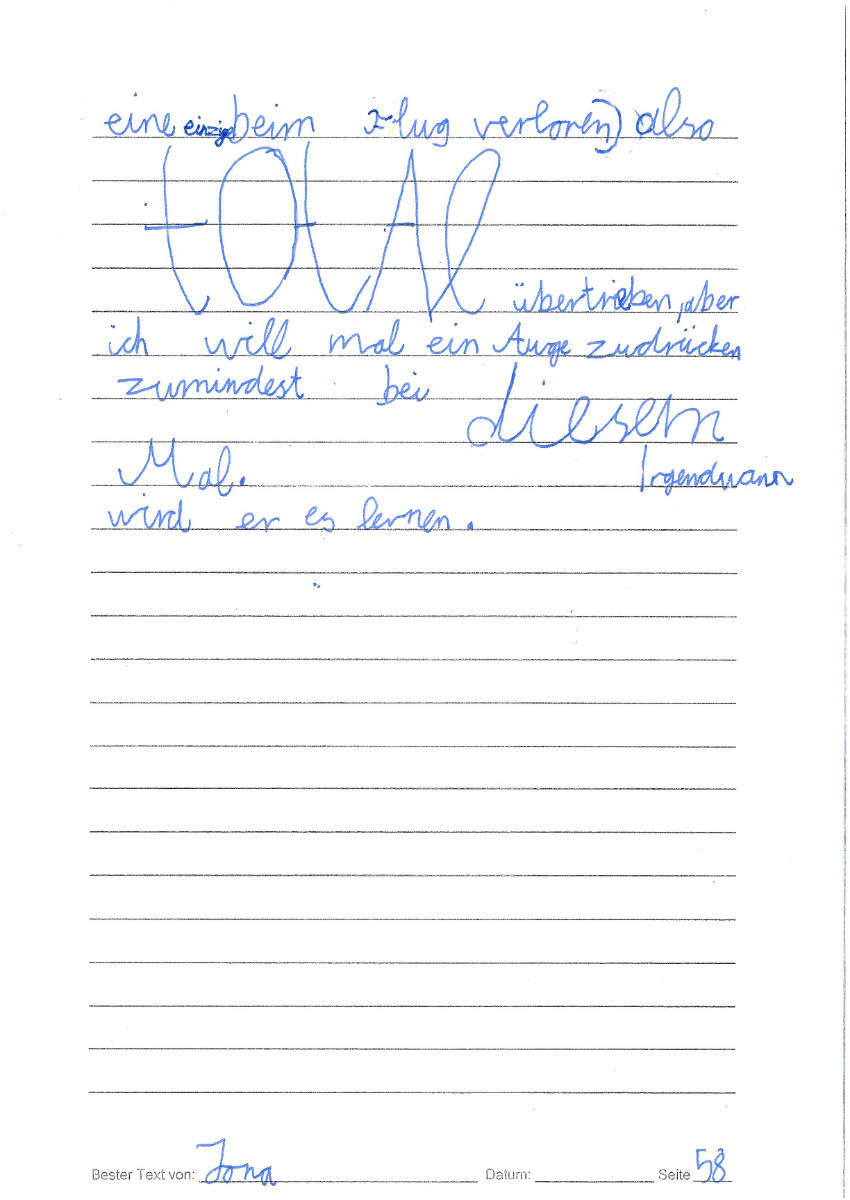 eine einzige beim Flug verloren) also
tOtAl
übertrieben, aber
ich will mal ein Auge zudrücken
zumindest bei diesem
Mal. Irgendwann
wird er es lernen.
Bester Text von: Jona Datum: Seite 58